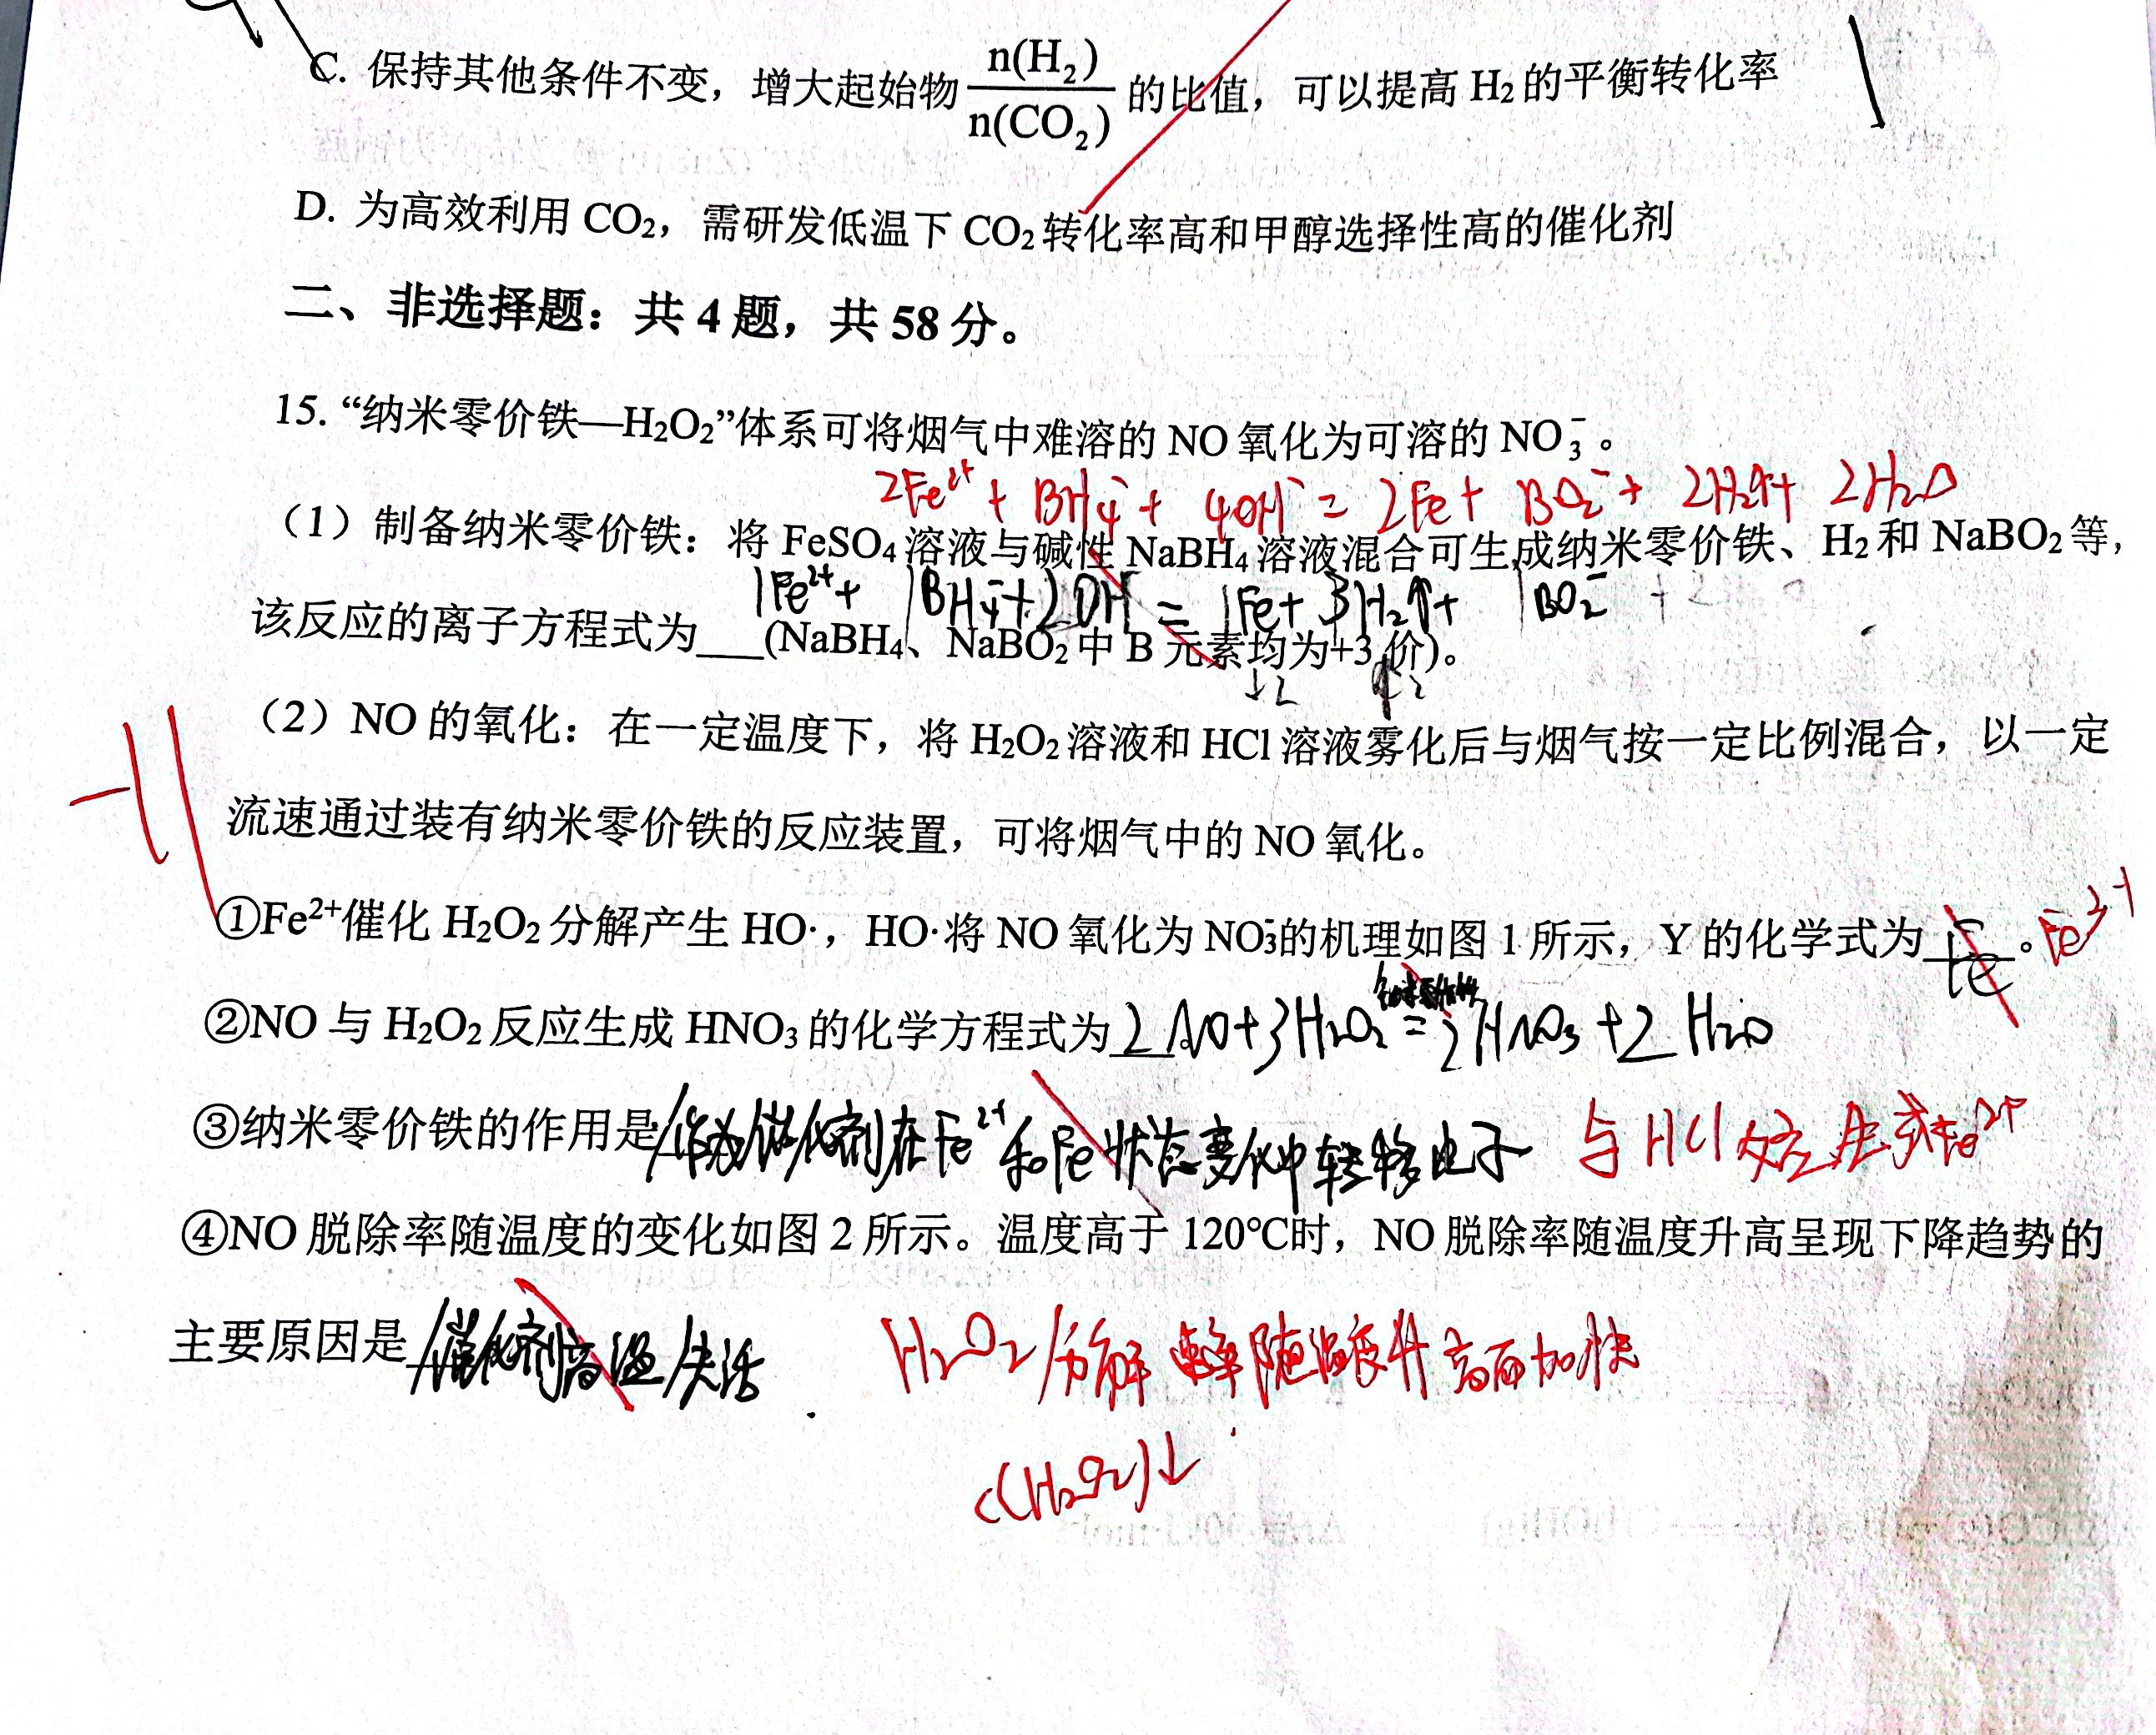 C. 保持其他条件不变，增大起始物 n(H₂)/n(CO₂) 的比值，可以提高 H₂的平衡转化率
D. 为高效利用 CO₂，需研发低温下 CO₂转化率高和甲醇选择性高的催化剂
二、非选择题：共 4 题，共 58 分。
15. “纳米零价铁—H₂O₂”体系可将烟气中难溶的 NO 氧化为可溶的 NO₃⁻。
2Fe²⁺ + BH₄⁻ + 4OH⁻ = 2Fe + BO₂⁻ + 2H₂↑ + 2H₂O
（1）制备纳米零价铁：将 FeSO₄溶液与碱性 NaBH₄溶液混合可生成纳米零价铁、H₂和 NaBO₂等，
1Fe²⁺ + 1BH₄⁻ + 2OH⁻ = 1Fe + 3H₂↑ + 1BO₂⁻
该反应的离子方程式为___(NaBH₄、NaBO₂中 B 元素均为+3 价)。
↓2 ↑2
（2）NO 的氧化：在一定温度下，将 H₂O₂溶液和 HCl 溶液雾化后与烟气按一定比例混合，以一定
流速通过装有纳米零价铁的反应装置，可将烟气中的 NO 氧化。
①Fe²⁺催化 H₂O₂分解产生 HO·，HO·将 NO 氧化为 NO₃⁻的机理如图 1 所示，Y 的化学式为 Fe 。Fe³⁺
②NO 与 H₂O₂反应生成 HNO₃的化学方程式为 2NO+3H₂O₂ = 2HNO₃+2H₂O
③纳米零价铁的作用是 作为催化剂在Fe²⁺和Fe状态变化中转移电子 与HCl反应生成Fe²⁺
④NO 脱除率随温度的变化如图 2 所示。温度高于 120℃时，NO 脱除率随温度升高呈现下降趋势的
主要原因是 催化剂高温失活 H₂O₂分解速率随温度升高而加快
c(H₂O₂)↓